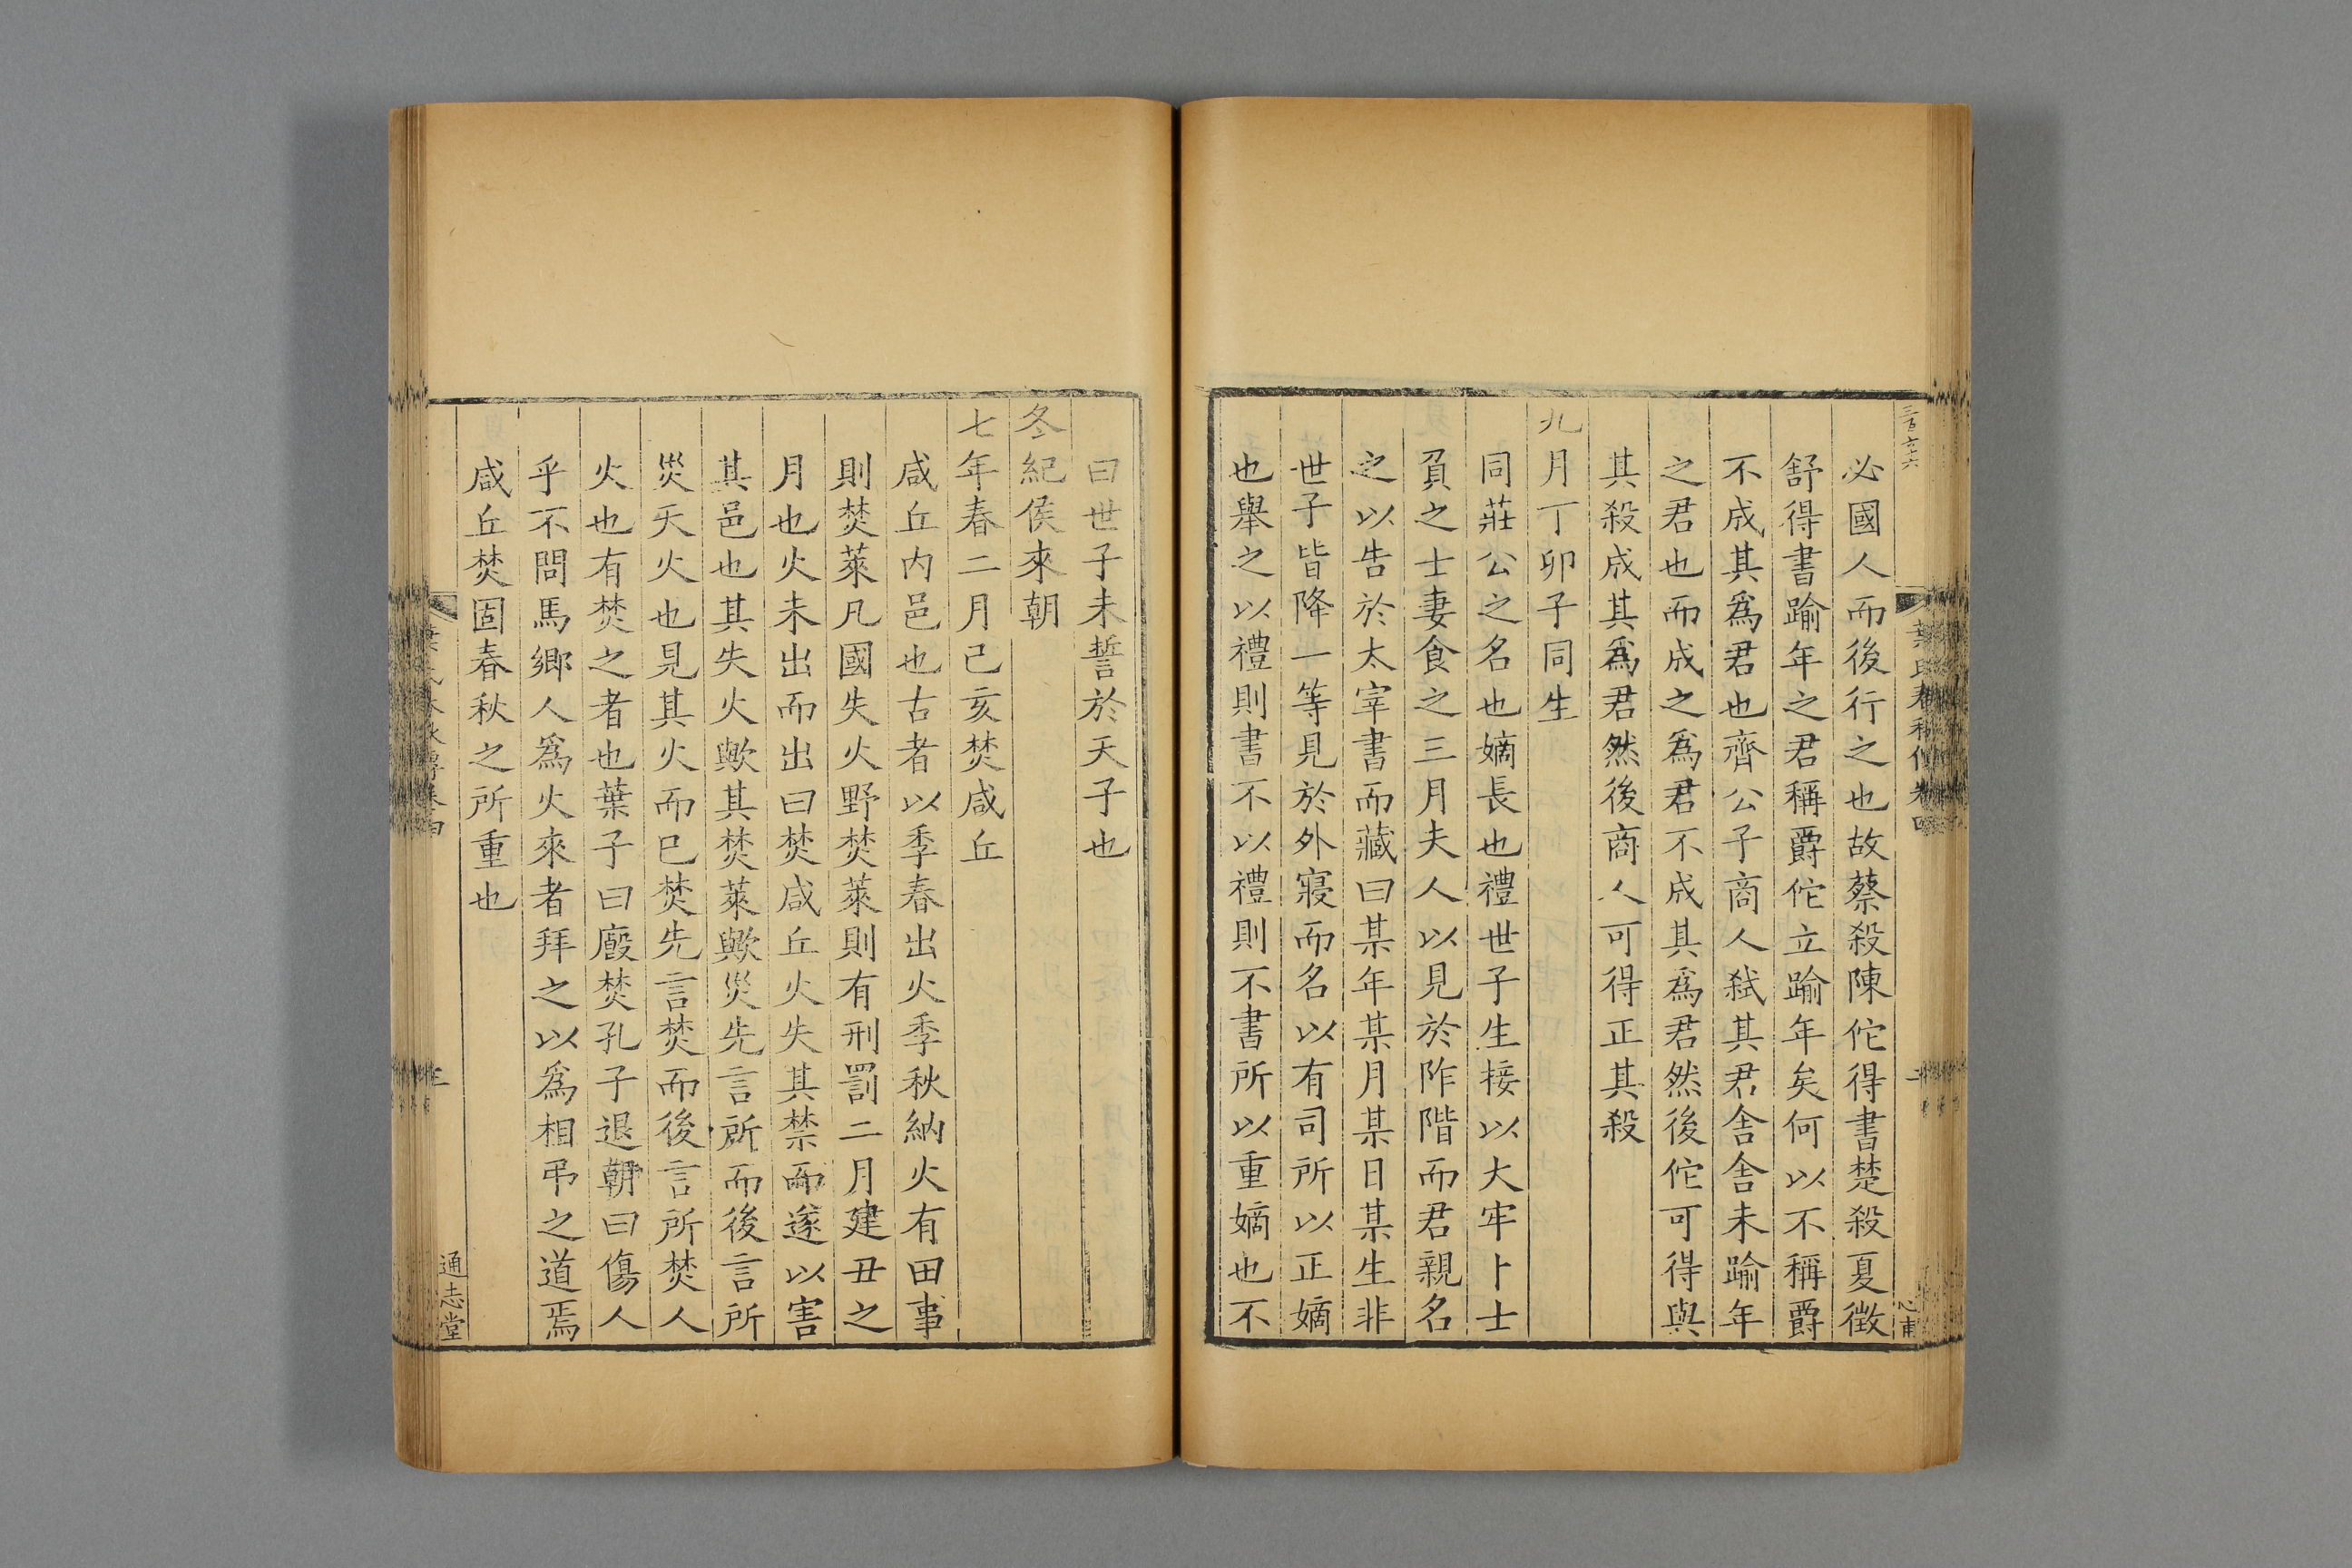 三百六十六
葉氏春秋傳卷四
二
心甫
必國人而後行之也故蔡殺陳佗得書楚殺夏徵
舒得書踰年之君稱爵佗立踰年矣何以不稱爵
不成其爲君也齊公子商人弑其君舍舍未踰年
之君也而成之爲君不成其爲君然後佗可得與
其殺成其爲君然後商人可得正其殺
九月丁卯子同生
同莊公之名也嫡長也禮世子生接以大牢卜士
負之士妻食之三月夫人以見於阼階而君親名
之以告於太宰書而藏曰某年某月某日某生非
世子皆降一等見於外寢而名以有司所以正嫡
也舉之以禮則書不以禮則不書所以重嫡也不
曰世子未誓於天子也
冬紀侯來朝
七年春二月己亥焚咸丘
咸丘内邑也古者以季春出火季秋納火有田事
則焚萊凡國失火野焚萊則有刑罰二月建丑之
月也火未出而出曰焚咸丘火失其禁而遂以害
其邑也其失火歟其焚萊歟災先言所而後言所
災天火也見其火而已焚先言焚而後言所焚人
火也有焚之者也葉子曰廏焚孔子退朝曰傷人
乎不問馬鄉人爲火來者拜之以爲相弔之道焉
咸丘焚固春秋之所重也
葉氏春秋傳卷四
三
通志堂